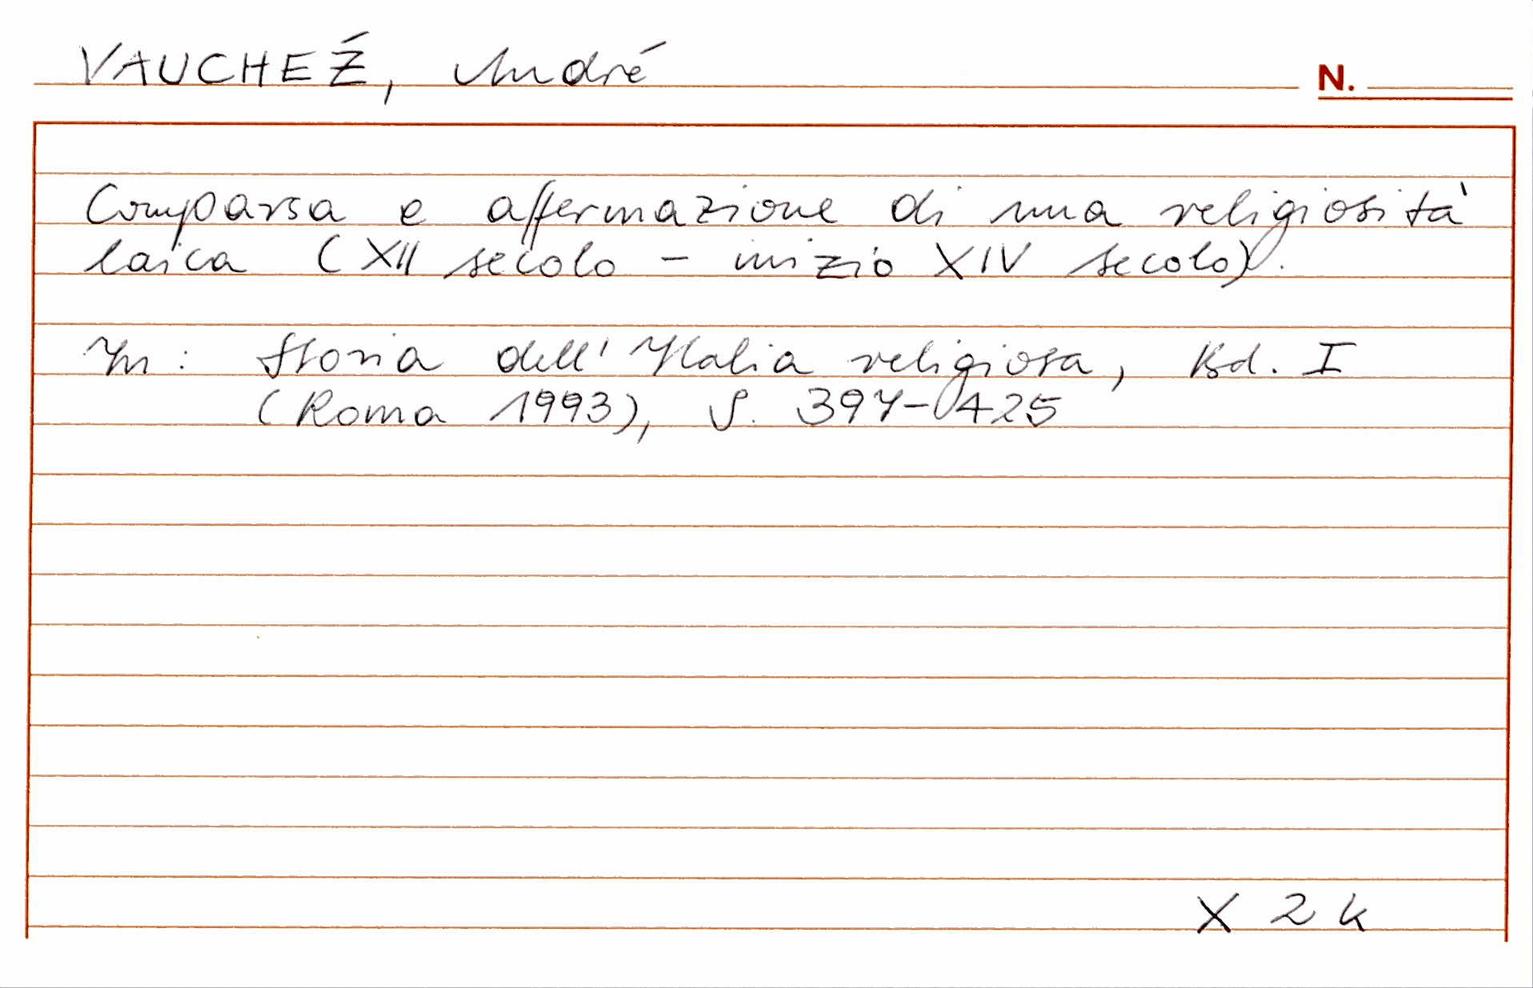 VAUCHEŹ, André
N.
Comparsa e affermazione di una religiosità
laica (XII secolo - inizio XIV secolo).
In: Storia dell'Italia religiosa, Bd. I
(Roma 1993), S. 397-425
X 2 k